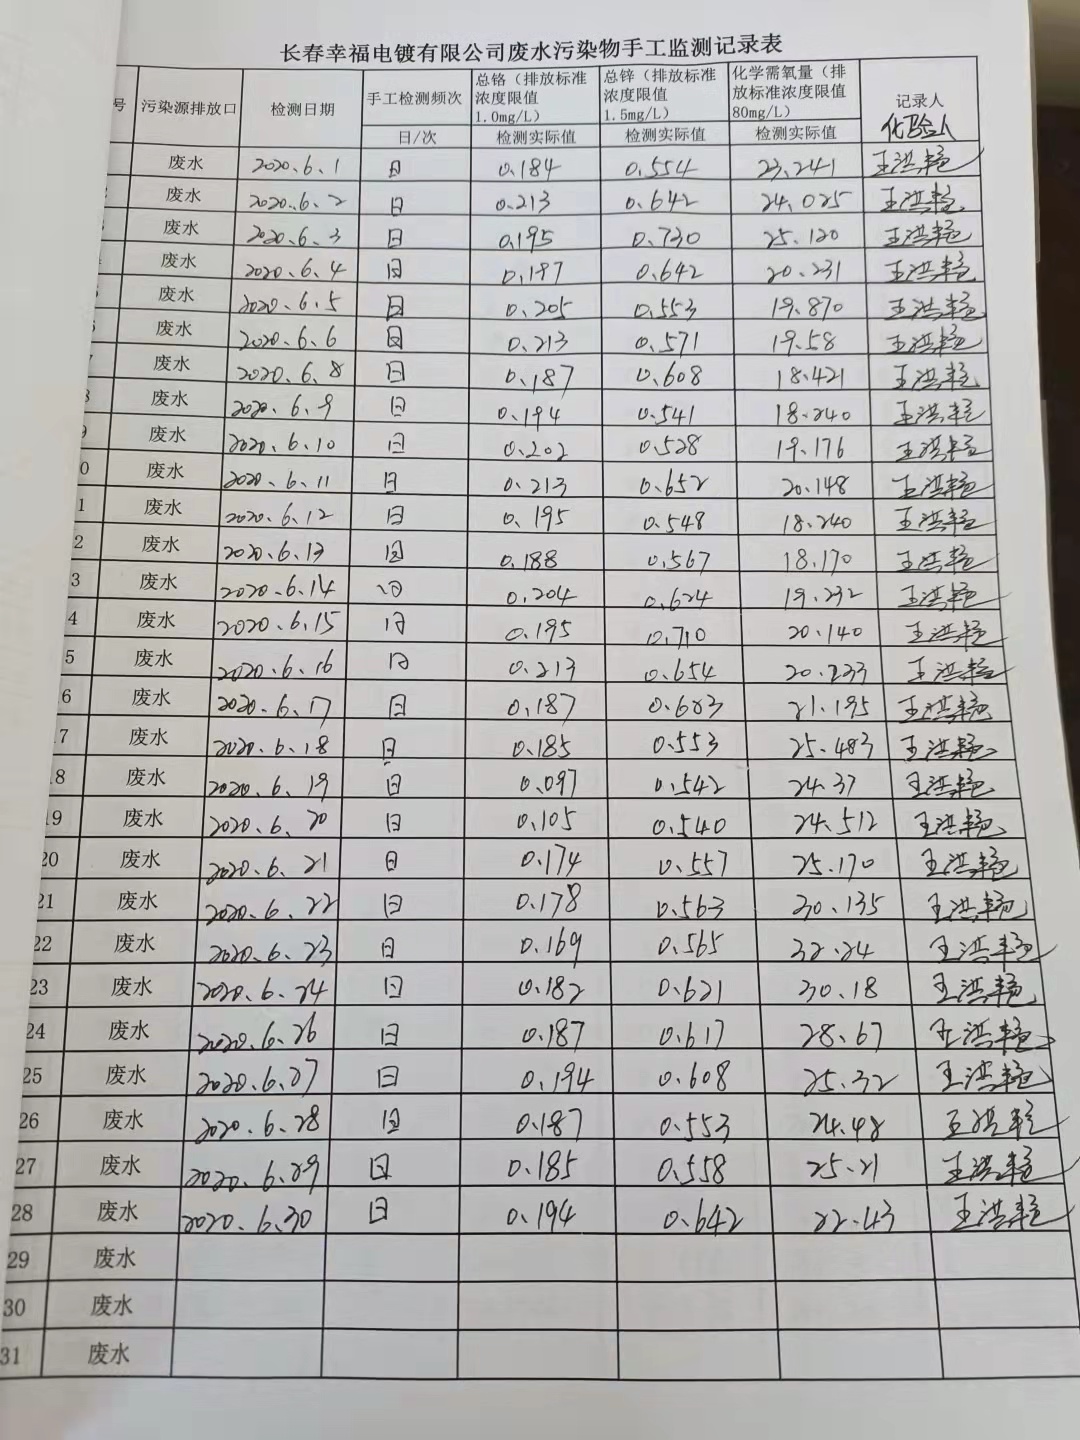 长春幸福电镀有限公司废水污染物手工监测记录表
号 污染源排放口 检测日期 手工检测频次 总铬（排放标准浓度限值1.0mg/L） 总锌（排放标准浓度限值1.5mg/L） 化学需氧量（排放标准浓度限值80mg/L） 记录人 化验人
日/次 检测实际值 检测实际值 检测实际值
废水 2020.6.1 日 0.184 0.554 23.241 王洪艳
废水 2020.6.2 日 0.213 0.642 24.025 王洪艳
废水 2020.6.3 日 0.195 0.730 25.120 王洪艳
废水 2020.6.4 日 0.187 0.642 20.231 王洪艳
废水 2020.6.5 日 0.205 0.553 19.870 王洪艳
废水 2020.6.6 日 0.213 0.571 19.58 王洪艳
废水 2020.6.8 日 0.187 0.608 18.421 王洪艳
8 废水 2020.6.9 日 0.194 0.541 18.240 王洪艳
9 废水 2020.6.10 日 0.202 0.528 19.176 王洪艳
0 废水 2020.6.11 日 0.213 0.652 20.148 王洪艳
1 废水 2020.6.12 日 0.195 0.548 18.240 王洪艳
2 废水 2020.6.13 日 0.188 0.567 18.170 王洪艳
3 废水 2020.6.14 日 0.204 0.624 19.232 王洪艳
4 废水 2020.6.15 日 0.195 0.710 20.140 王洪艳
5 废水 2020.6.16 日 0.213 0.654 20.233 王洪艳
6 废水 2020.6.17 日 0.187 0.603 21.195 王洪艳
17 废水 2020.6.18 日 0.185 0.553 25.483 王洪艳
18 废水 2020.6.19 日 0.097 0.542 24.37 王洪艳
19 废水 2020.6.20 日 0.105 0.540 24.512 王洪艳
20 废水 2020.6.21 日 0.174 0.557 25.170 王洪艳
21 废水 2020.6.22 日 0.178 0.563 30.135 王洪艳
22 废水 2020.6.23 日 0.169 0.565 32.24 王洪艳
23 废水 2020.6.24 日 0.182 0.621 30.18 王洪艳
24 废水 2020.6.26 日 0.187 0.617 28.67 王洪艳
25 废水 2020.6.27 日 0.194 0.608 25.32 王洪艳
26 废水 2020.6.28 日 0.187 0.553 24.48 王洪艳
27 废水 2020.6.29 日 0.185 0.558 25.21 王洪艳
28 废水 2020.6.30 日 0.194 0.642 22.43 王洪艳
29 废水
30 废水
31 废水